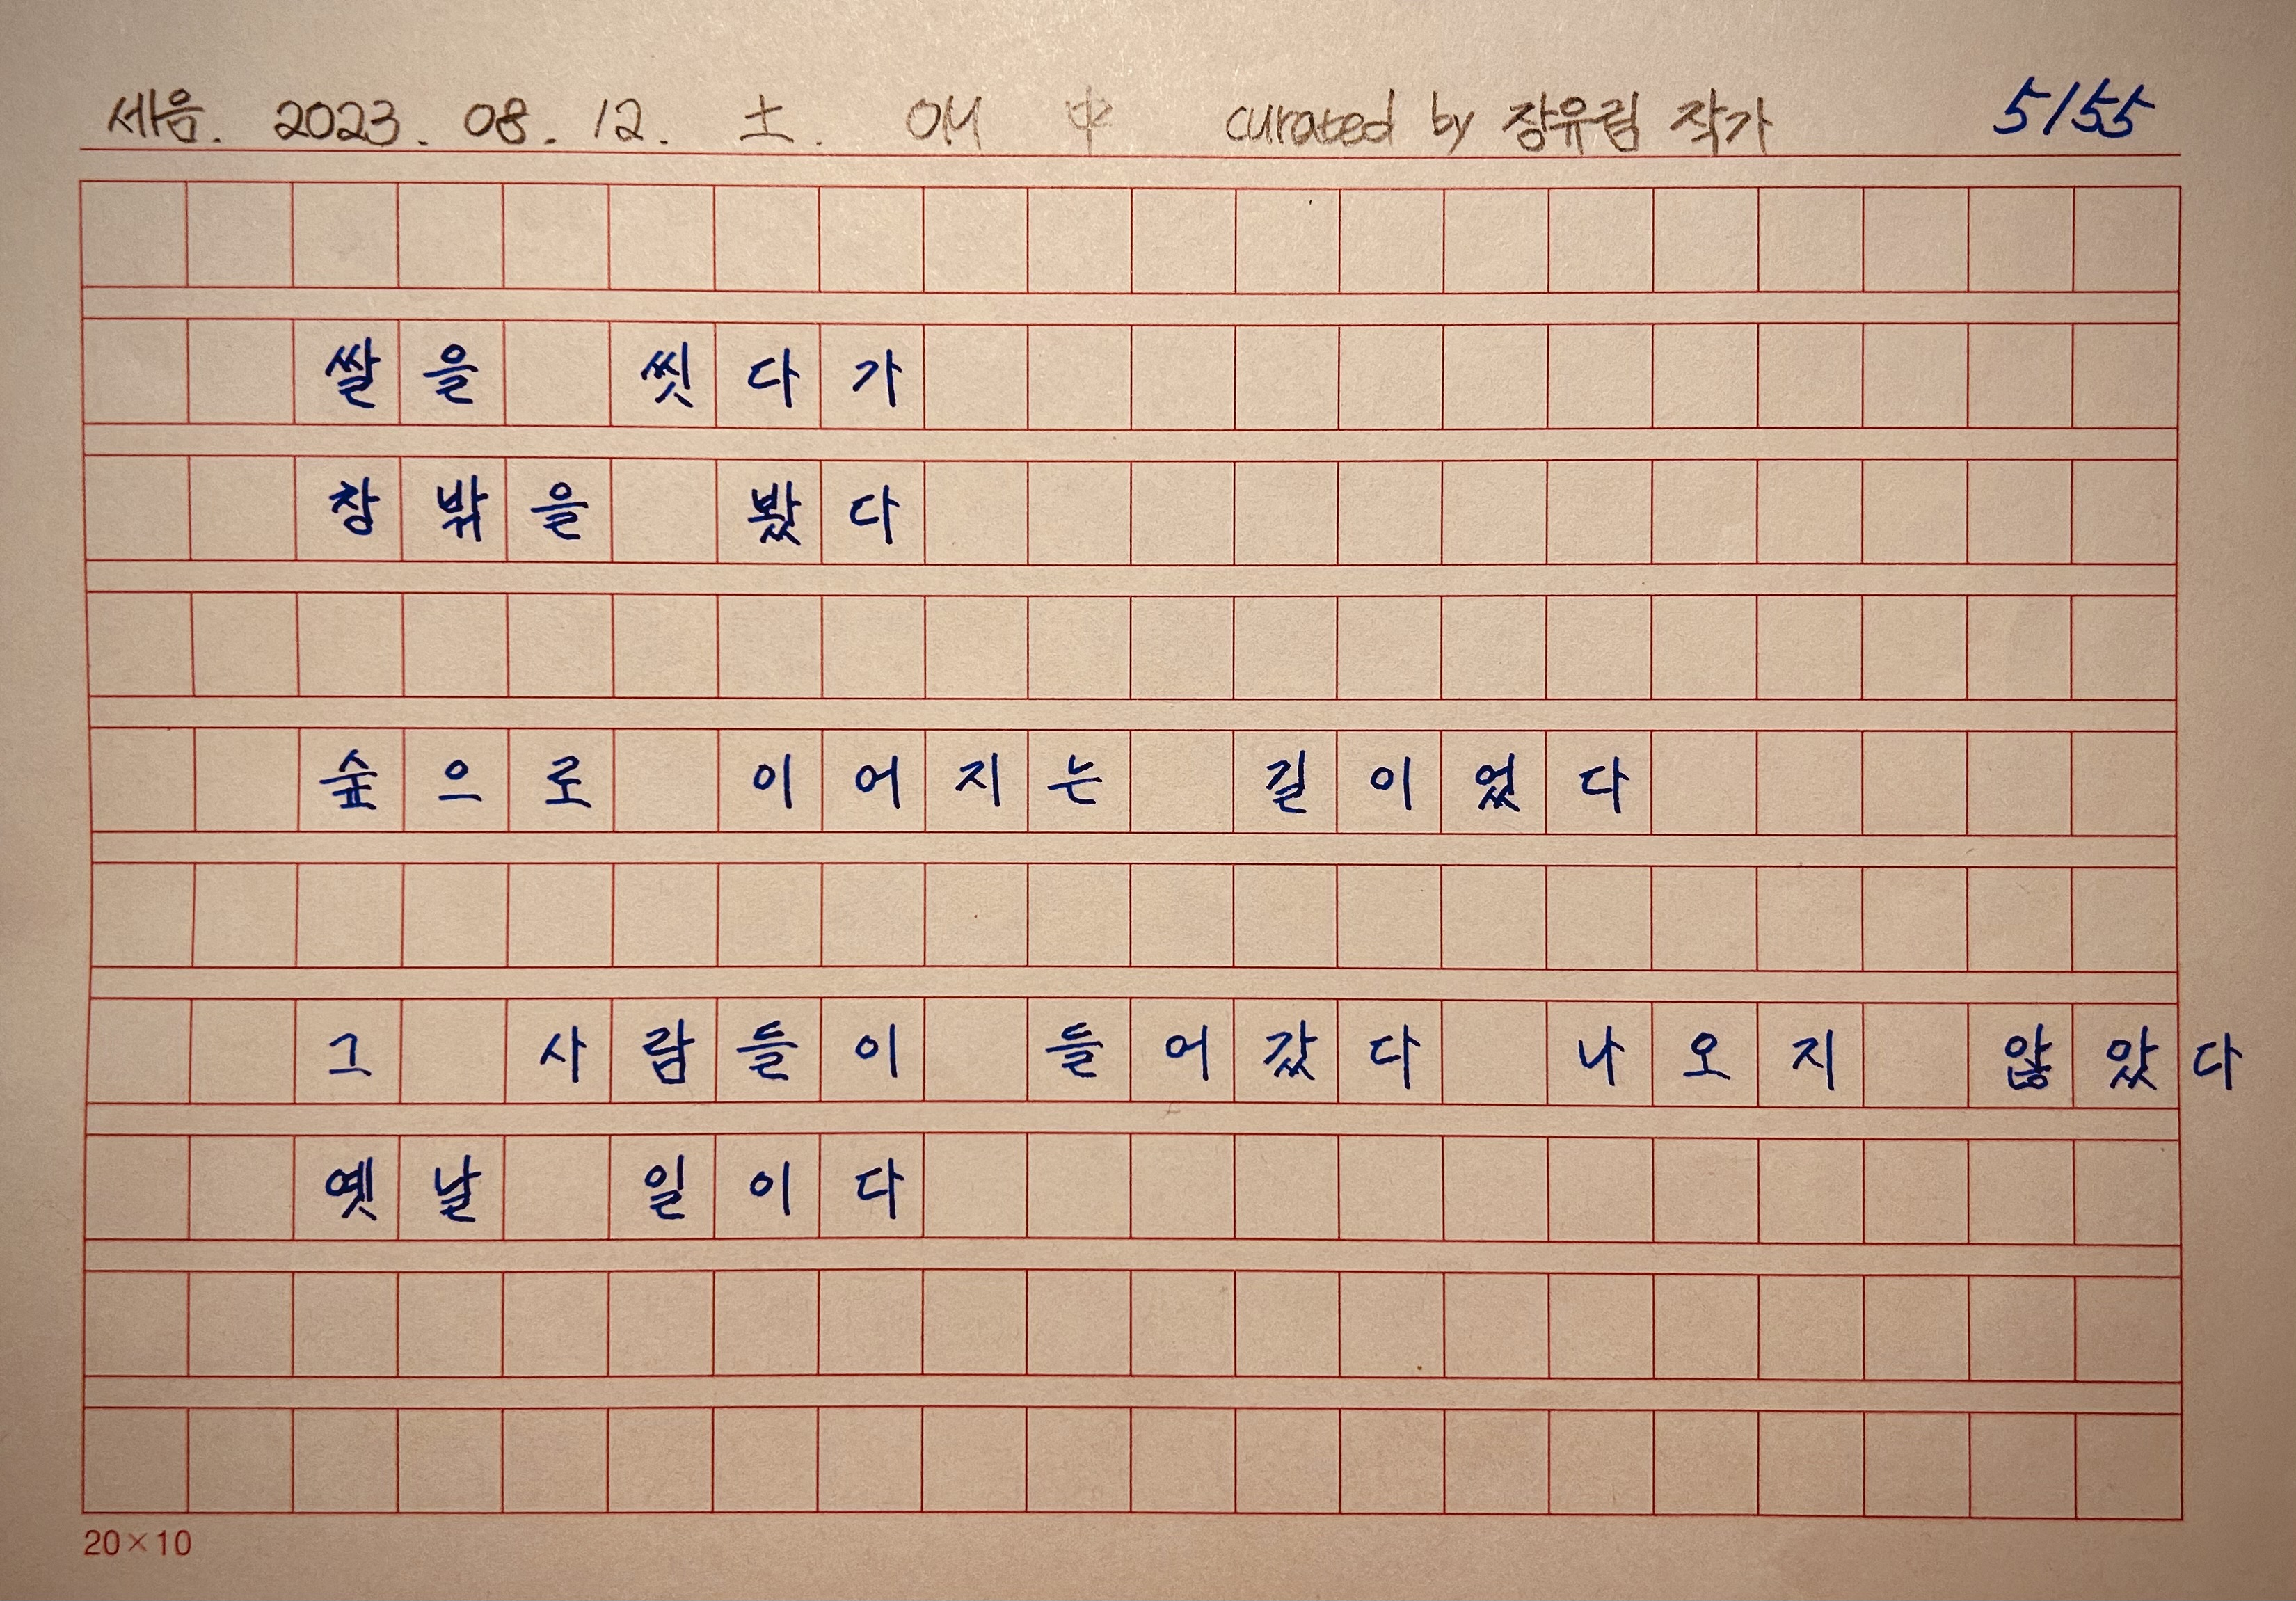 세음. 2023. 08. 12. 土. 애 中 curated by 장유림 작가 5/55
쌀을 씻다가
창밖을 봤다
숲으로 이어지는 길이었다
그 사람들이 들어갔다 나오지 않았다
옛날 일이다
20×10